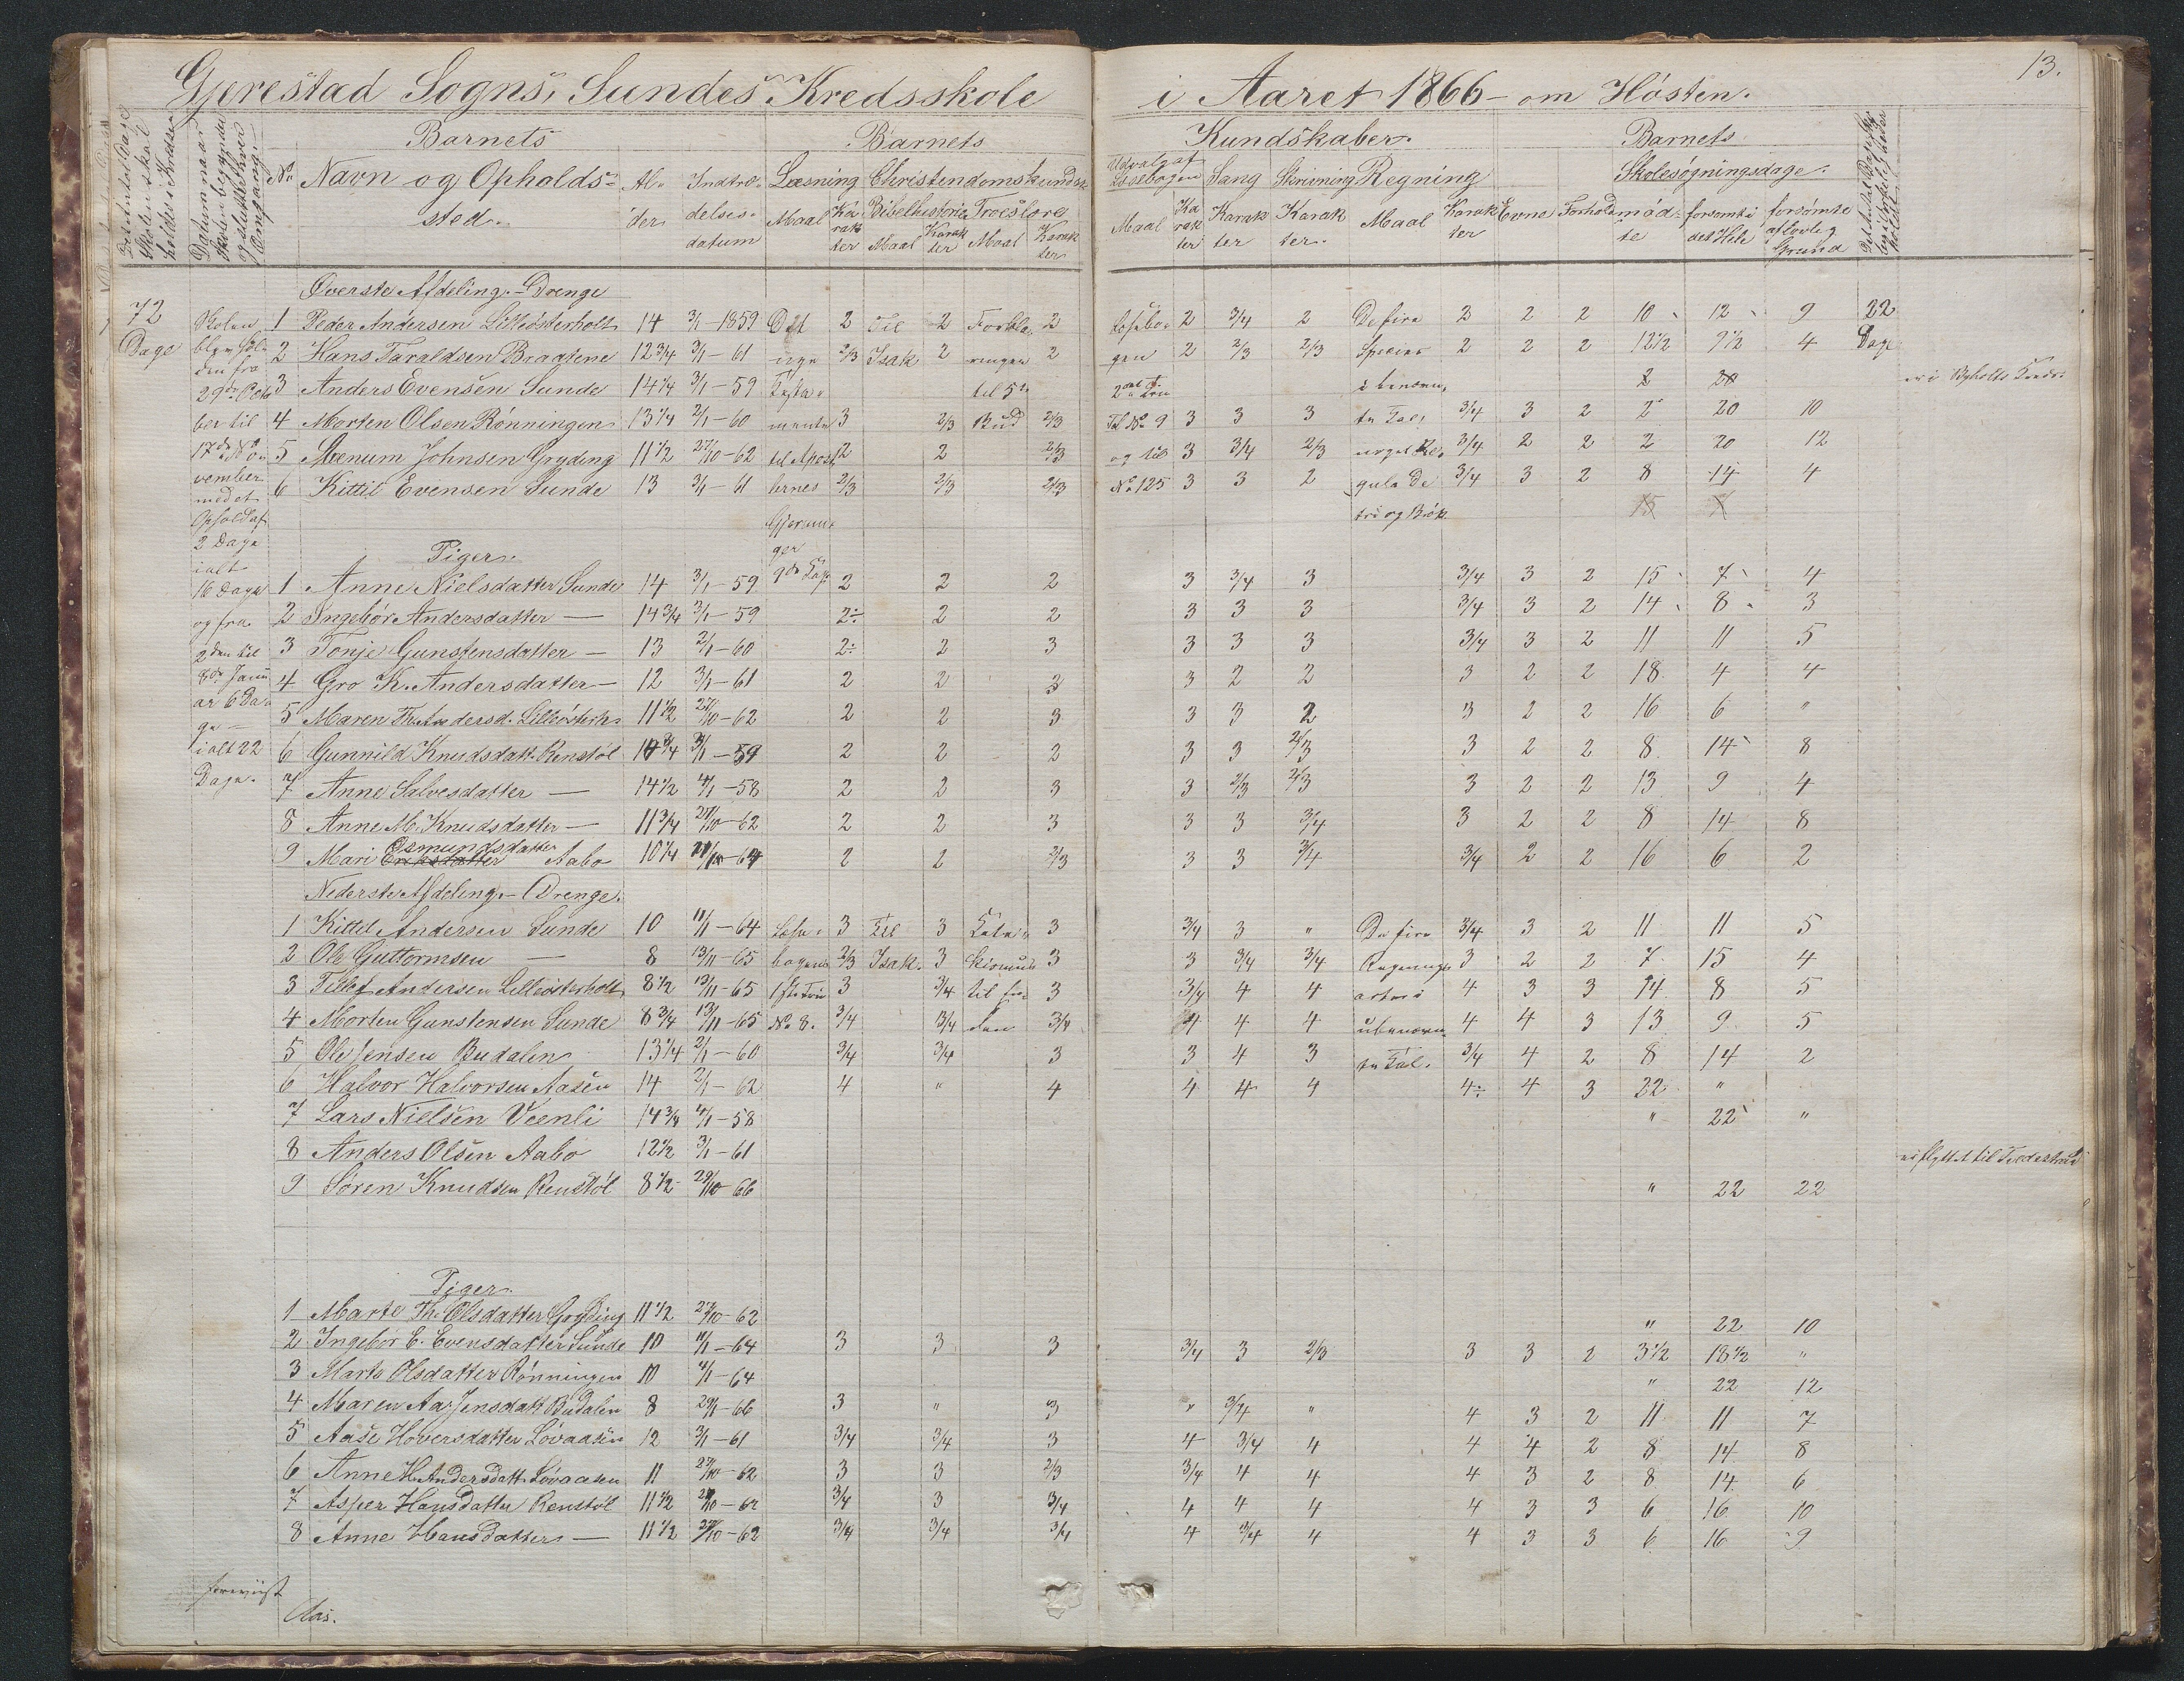 13.
Gjerestad Sogns, Sundes Kredsskole i Aaret 1866 – om Hösten.
Barnets Barnets Kundskaber. Barnets
No Navn og Opholds- Al- Indtræ- Læsning Christendomskundsk. Udvalg af Læsebogen Sang Skrivning Regning Skolesøgningsdage.
sted. der delses- Maal Ka Bibelhistorie Troeslære Maal Ka Karak Karak Maal Karak Evne Forhold mød- forsømte i forsømte
datum rak ter Maal Karak ter Maal Karak ter rak ter ter ter. ter te det Hele af lovlig Grund
Øverste Afdeling. – Drenge
72 Dage
Skolen blev holden fra 29de Octo ber til 17de No- vember med et Ophold af 2 Dage ialt 16 Dage og fra 2den til 8de Janu ar 6 Da- ge – ialt 22 Dage.
1 Peder Andersen Lilleösterholt 14 3/1-1859 Det 2 Til 2 Forkla- 2 Læsebo- 2 3/4 2 De fire 2 2 2 10 12 9 22
2 Hans Taraldsen Braatene 12 3/4 3/1-61 nye 2/3 Isak 2 ringen 2 gen 2 2/3 2/3 Species 2 2 2 12 1/2 9 1/2 4 Dage
3 Anders Evensen Sunde 14 1/4 3/1-59 Testa- til 5te 2det Trin i benævn- 2 20 er i Kreds.
4 Morten Olsen Rönningen 13 1/4 2/1-60 mente 3 2/3 Bud 2/3 No 9 3 3 3 te Tal, 3/4 3 2 2 20 10
5 Mænum Johnsen Gryding 11 1/2 27/10-62 til Apost- 2 2 2/3 og til 3 3/4 2/3 3/4 2 2 2 20 12
6 Kittil Evensen Sunde 13 3/1-61 lernes 2/3 2/3 2/3 No 125 3 3 2 gula de 3/4 3 2 8 14 4
Gjernin- tri og Brøk 15
ger
Piger.
1 Anne Nielsdatter Sunde 14 3/1-59 9de Kap 2 2 2 3 3/4 3 3/4 3 2 15 7 4
2 Ingebör Andersdatter — 14 3/4 3/1-59 2÷ 2 2 3 3 3 3/4 3 2 14 8 3
3 Tonje Gunstensdatter — 13 2/1-60 2÷ 2 3 3 3 3 3/4 3 2 11 11 5
4 Gro K. Andersdatter — 12 3/1-61 2 2 3 3 2 2 3 2 2 18 4 4
5 Maren Th. Andersd. Lilleösterh. 11 1/2 27/10-62 2 2 3 3 3 2 3 2 2 16 6 "
6 Gunnild Knudsdatt. Renstöl 3/1-59 2 2 2 3 3 2/3 3 2 2 8 14 8
7 Anne Salvesdatter — 14 1/2 4/1-58 2 2 3 3 2/3 2/3 3 2 2 13 9 4
8 Anne M. Knudsdatter — 11 3/4 27/10-62 2 2 3 3 3 3/4 3 2 2 8 14 8
9 Mari Osmundsdatter Aabo 10 1/4 2 2 2/3 3 3 3/4 3/4 2 2 16 6 2
Nederste Afdeling. – Drenge.
1 Kittil Andersen Sunde 10 11/1-64 Læse- 3 Til 3 Kate- 3 3/4 3 " De fire 3/4 3 2 11 11 5
2 Ole Guttormsen — 8 13/11-65 bogens 2/3 Isak. 3 kismus 3 3 3/4 3/4 Regnings- 3 2 2 7 15 4
3 Tellef Andersen Lilleösterholt 8 1/2 13/11-65 1ste Trin 3 3/4 til 3 3/4 4 4 arter i 4 3 3 14 8 5
4 Morten Gunstensen Sunde 8 3/4 13/11-65 No 8. 3/4 3/4 3/4 4 4 4 ubenævn- 4 4 3 13 9 5
5 Ole Jensen Budalen 13 1/4 2/1-60 3/4 3/4 3 3 4 3 te Tal. 3/4 4 2 8 14 2
6 Halvor Halvorsen Aasen 14 2/1-62 4 " 4 4 4 4 4÷ 4 3 22 "
7 Lars Nielsen Veenli 14 3/4 4/1-58 " 22 "
8 Anders Olsen Aabo 12 1/2 3/1-61 er flyttet til
9 Sören Knudsen Renstöl 8 1/2 29/10-66 " 22 22
Piger.
1 Marte Th. Olsdatter Gryding 11 1/2 27/10-62 " 22 10
2 Ingebor E. Evensdatter Sunde 10 11/1-64 3 3 3 3/4 3 2/3 3 3 2 3 1/2 18 1/2 "
3 Marte Olsdatter Rönningen 10 4/1-64 " 22 12
4 Maren Aa. Jensdatt. Budalen 8 29/1-66 3 " 3 " 3/4 " 4 3 2 11 11 7
5 Aase Hoversdatter Lövaasen 12 3/1-61 3/4 3/4 3 4 3/4 4 4 4 2 8 14 8
6 Anne H. Andersdatt. Lövaasen 11 27/10-62 3 3 2/3 3/4 4 4 4 3 2 8 14 6
7 Asper Hansdatter Renstöl 11 1/2 27/10-62 3/4 3 3/4 4 4 4 4 3 3 6 16 10
8 Anne Hansdatter — 11 1/2 27/10-62 3/4 3/4 3/4 4 3/4 4 4 3 3 6 16 9
foreviist
Aas.